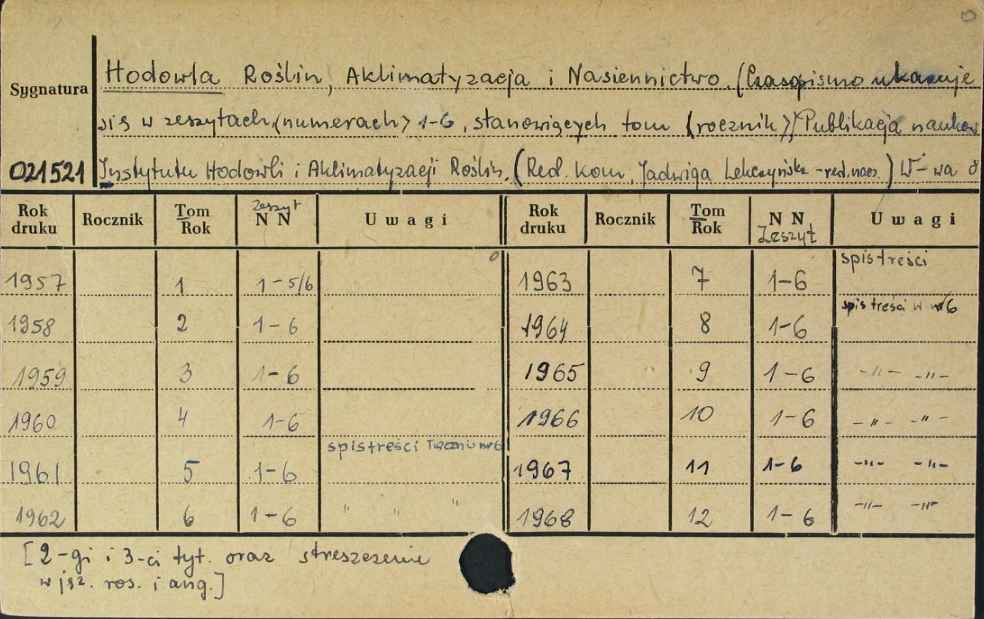 Sygnatura
021521
Hodowla Roślin, Aklimatyzacja i Nasiennictwo. (Czasopismo ukazuje
się w zeszytach (numerach) 1-6, stanowiących tom (rocznik)) Publikacja nauków
Instytutu Hodowli i Aklimatyzacji Roślin. (Red. Kom. Jadwiga Lekczyńska - red. nacz.) W-wa 8
Rok druku Rocznik Tom Rok zeszyt N N Uwagi Rok druku Rocznik Tom Rok N N Zeszyt Uwagi
1957 1 1-5/6 1963 7 1-6 spis treści
1958 2 1-6 1964 8 1-6 spis treści w nr 6
1959 3 1-6 1965 9 1-6 -"- -"-
1960 4 1-6 1966 10 1-6 -"- -"-
1961 5 1-6 spis treści nr 6 1967 11 1-6 -"- -"-
1962 6 1-6 " " 1968 12 1-6 -"- -"-
[2-gi i 3-ci tyt. oraz streszczenie
w jęz. ros. i ang.]